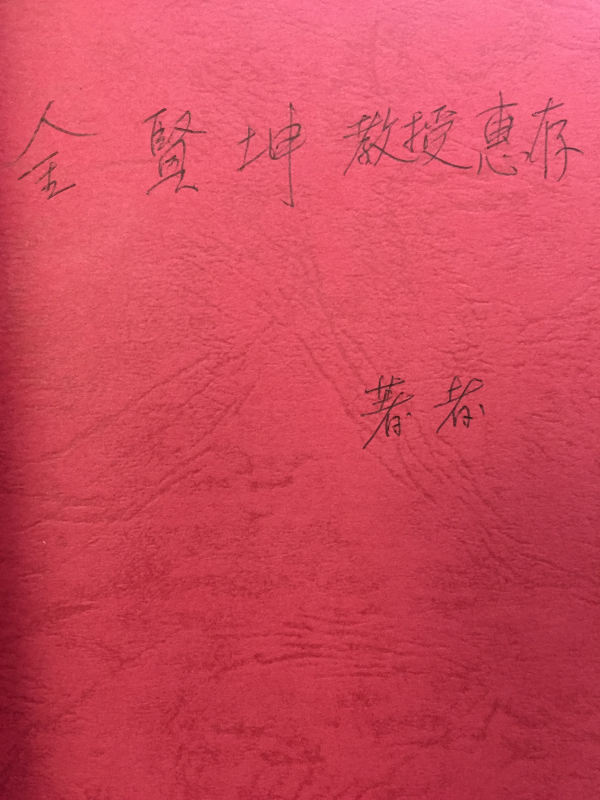 全 賢 坤 教授惠存
著者